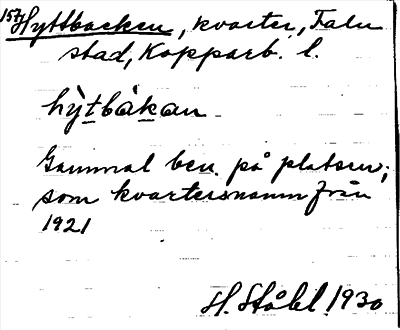 157 Hyttbacken, kvarter, Falu
stad, Kopparb. l.
hỳtbàkan
Gammal ben. på platsen;
som kvartersnamn från
1921
H. Ståhl 1930